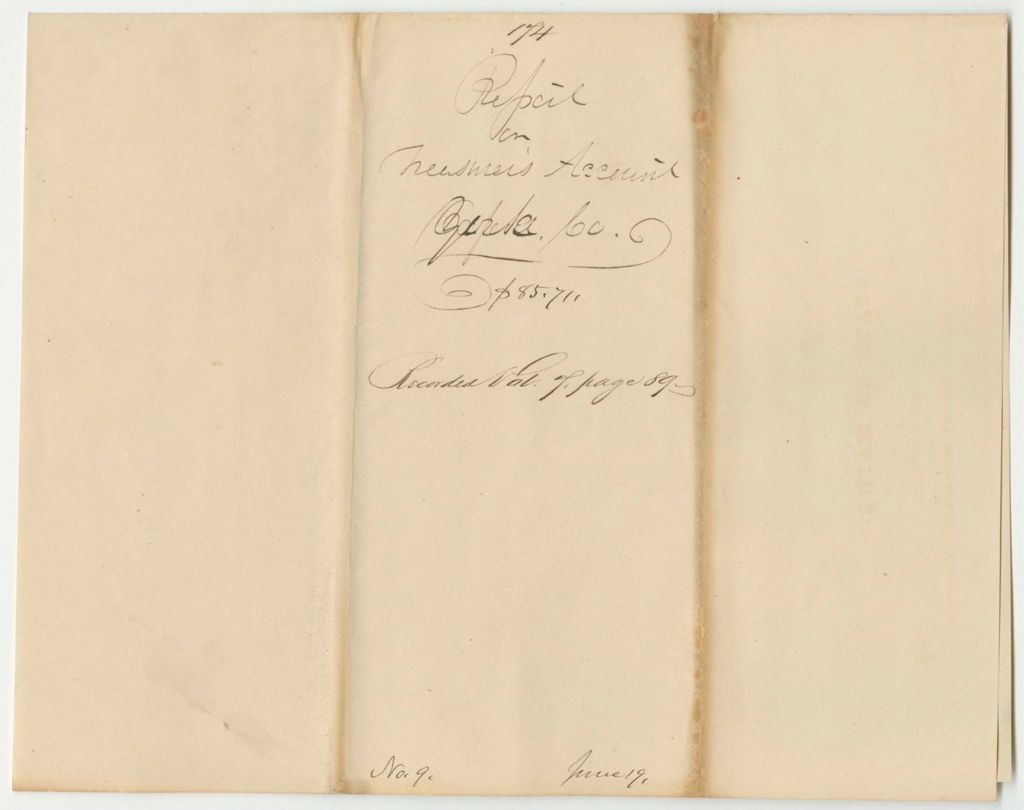 174
Report
on
Treasurer's Account
Co.
$85.71.
Recorded Vol. 7. page 89
No. 9.
June 19.